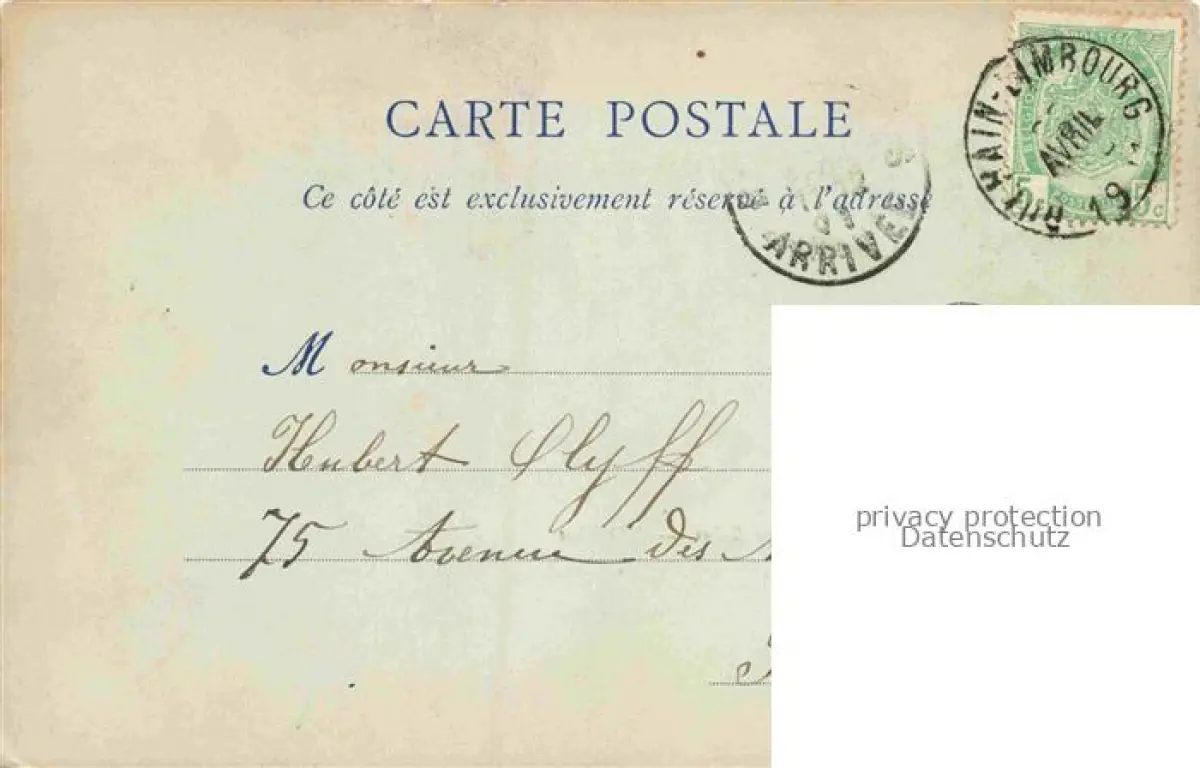 CARTE POSTALE
Ce côté est exclusivement réservé à l'adresse
AVRIL
19
5 5c
ARRIVÉE
Monsieur
Hubert Clyff
75 Avenue des
privacy protection
Datenschutz